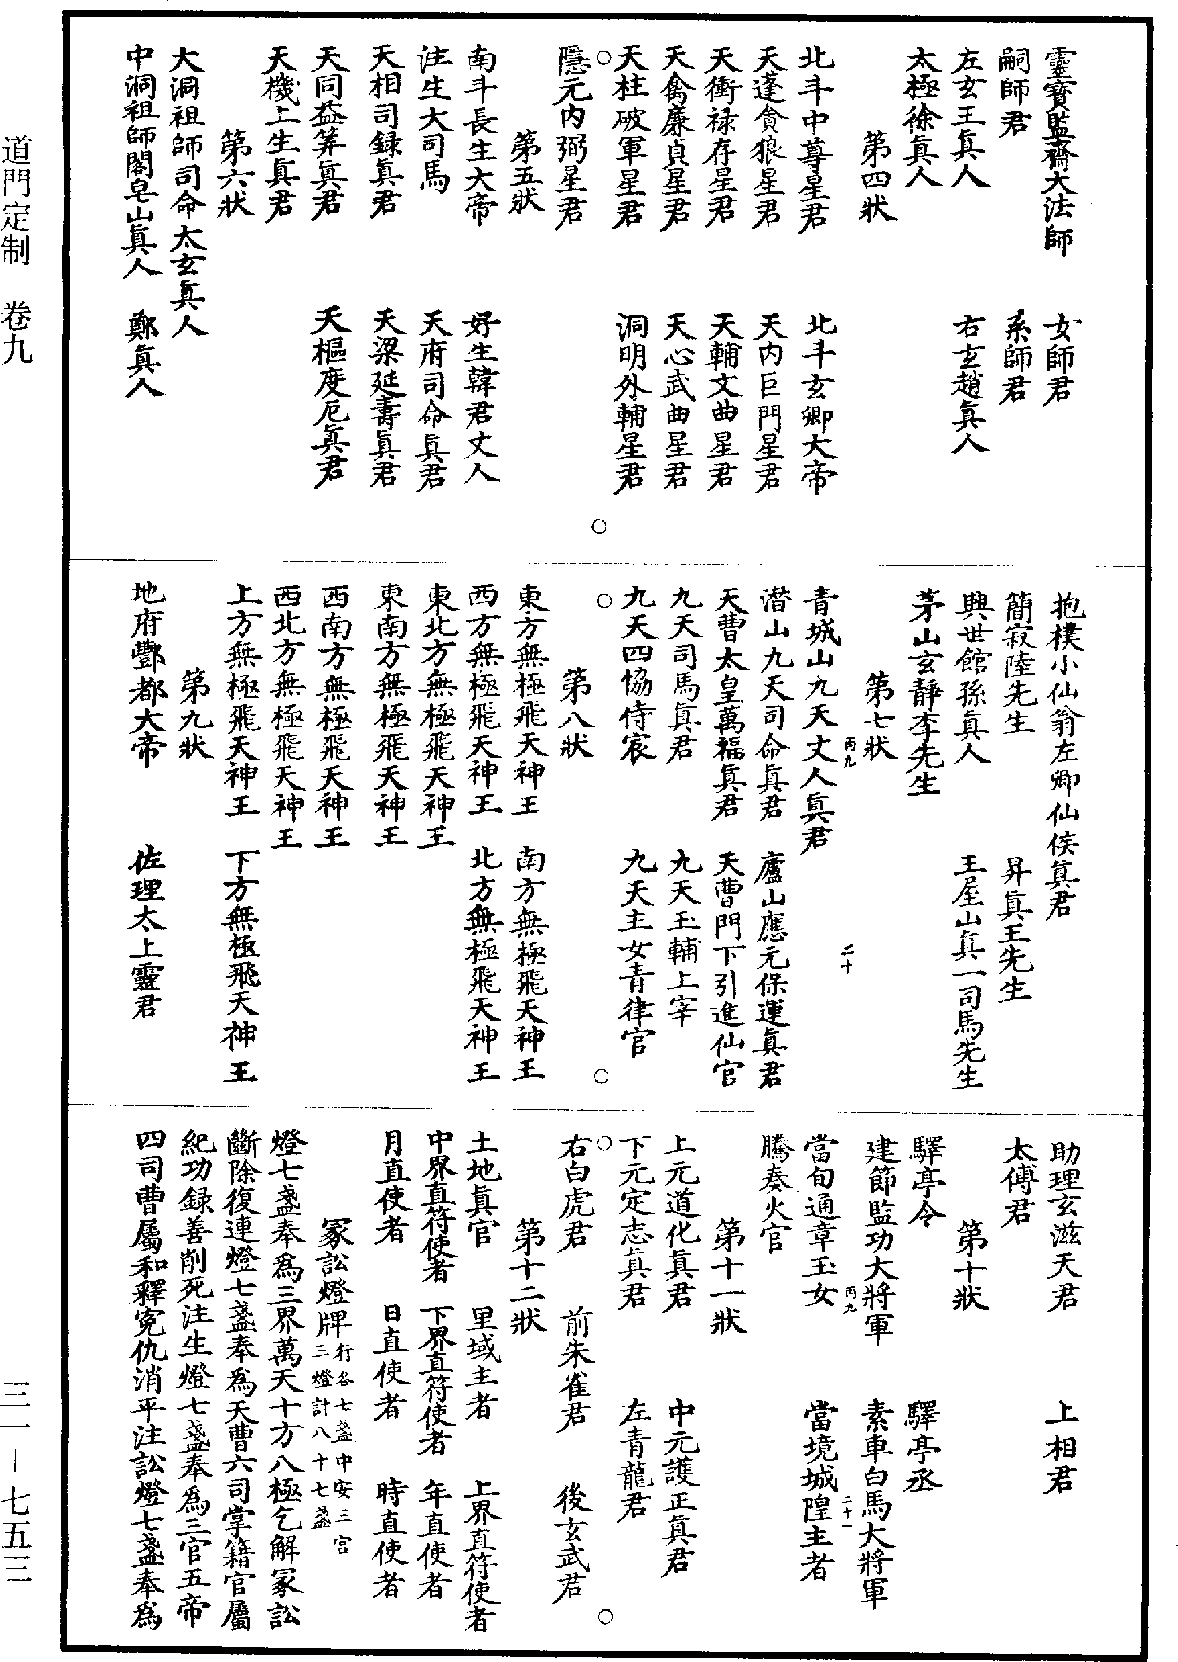 道門定制　卷九
靈寶監齋大法師　女師君
嗣師君　系師君
左玄王真人　右玄趙真人
太極徐真人
第四狀
北斗中尊星君　北斗玄卿大帝
天蓬貪狼星君　天內巨門星君
天衝祿存星君　天輔文曲星君
天禽廉貞星君　天心武曲星君
天柱破軍星君　洞明外輔星君
隱元內弼星君
第五狀
南斗長生大帝　好生韓君丈人
注生大司馬　天府司命真君
天相司録真君　天梁延壽真君
天同益筭真君　天樞度厄真君
天機上生真君
第六狀
大洞祖師司命太玄真人
中洞祖師閣皂山真人　鄭真人
抱樸小仙翁左卿仙侯真君
簡寂陸先生　昇真王先生
興世館孫真人　王屋山真一司馬先生
茅山玄靜李先生
第七狀
丙九　二十
青城山九天丈人真君
潛山九天司命真君　廬山應元保運真君
天曹太皇萬福真君　天曹門下引進仙官
九天司馬真君　九天玉輔上宰
九天四協侍宸　九天主女青律官
第八狀
東方無極飛天神王　南方無極飛天神王
西方無極飛天神王　北方無極飛天神王
東北方無極飛天神王
東南方無極飛天神王
西南方無極飛天神王
西北方無極飛天神王
上方無極飛天神王　下方無極飛天神王
第九狀
地府酆都大帝　佐理太上靈君
助理玄滋天君　上相君
太傅君
第十狀
驛亭令　驛亭丞
建節監功大將軍　素車白馬大將軍
丙九　二十一
當旬通章玉女　當境城隍主者
騰奏火官
第十一狀
上元道化真君　中元護正真君
下元定志真君　左青龍君
右白虎君　前朱雀君　後玄武君
第十二狀
土地真官　里域主者　上界直符使者
中界直符使者　下界直符使者　年直使者
月直使者　日直使者　時直使者
冢訟燈牌行各七盞中安三宫三燈計八十七盞
燈七盞奉為三界萬天十方八極乞解冢訟
斷除復連燈七盞奉為天曹六司掌籍官屬
紀功録善削死注生燈七盞奉為三官五帝
四司曹屬和釋冤仇消平注訟燈七盞奉為
三一－七五三